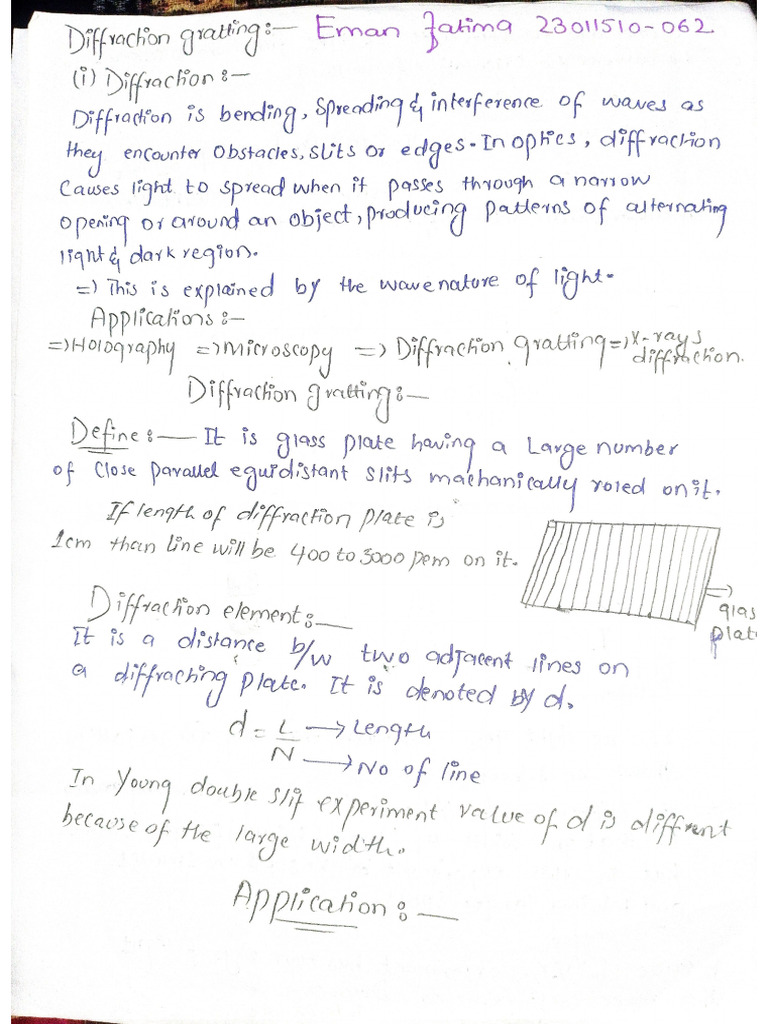 Diffraction gratting:— Eman Fatima 23011510-062
(i) Diffraction:—
Diffraction is bending, Spreading & interference of waves as
they encounter obstacles, slits or edges. In optics, diffraction
Causes light to spread when it passes through a narrow
opening or around an object, producing patterns of alternating
light & dark region.
=) This is explained by the wave nature of light.
Applications:—
=) Holography =) Microscopy =) Diffraction gratting =) X-rays
diffraction.
Diffraction gratting:—
Define:— It is glass plate having a Large number
of Close Parallel equidistant slits machanically roled on it.
If length of diffraction plate is
1cm than line will be 400 to 3000 pem on it.
glas
Plat
Diffraction element:—
It is a distance b/w two adjacent lines on
a diffraching plate. It is denoted by d.
d = L → Length
N → No of line
In Young double slit experiment value of d is diffrent
because of the large width.
Application:—